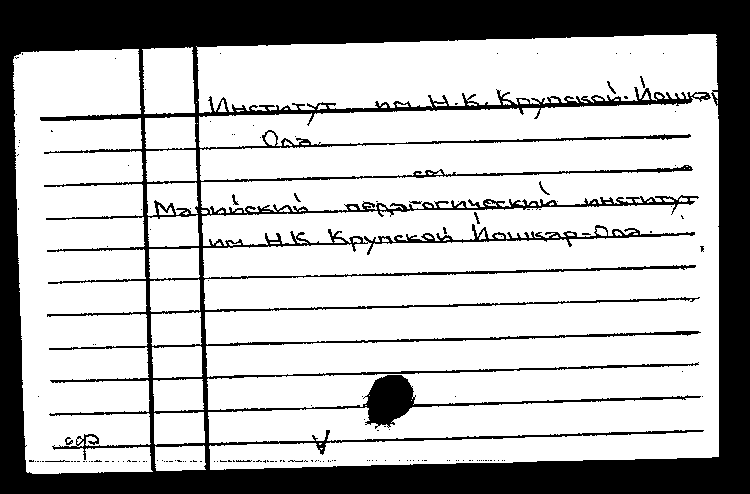 Институт им. Н.К. Крупской. Йошкар
Ола.
см.
Марийский педагогический институт
им. Н.К. Крупской Йошкар-Ола.